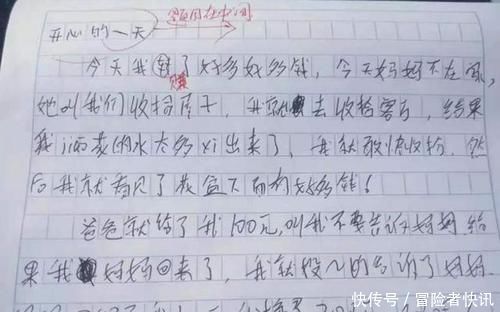 题目在中间
开心的一天
今天我赚了好多好多钱,今天妈妈不在家,
她叫我们收拾房子,我就去收拾客厅,结果
我jiao花的水太多xi出来了,我就敢快收拾,然
后我就看见了花盆下面有好多钱!
爸爸就给了我100元,叫我不要告诉妈妈,结
果我妈妈回来了,我就投入的告诉了妈妈
快传号/冒险者快讯